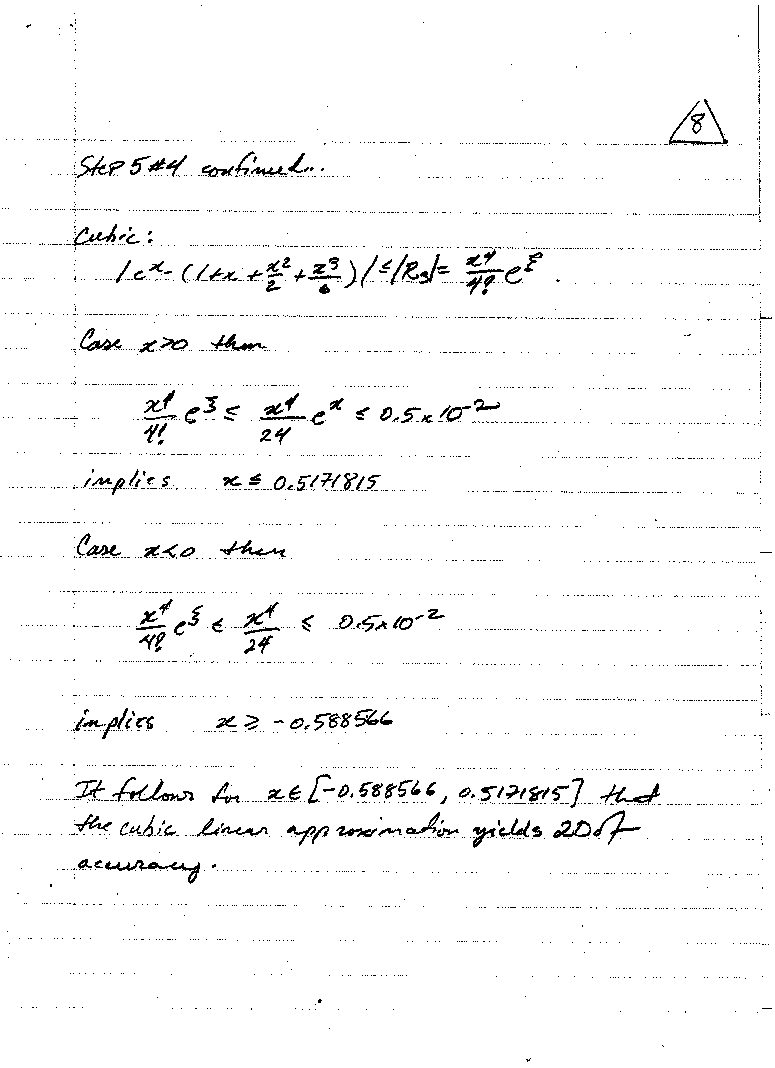 8
Step 5 #4 continued...
Cubic:
|e^x - (1+x+x^2/2+x^3/6)| ≤ |R_3| = x^4/4! e^ξ.
Case x>0 then
x^4/4! e^ξ ≤ x^4/24 e^x ≤ 0.5x10^-2
implies x ≤ 0.5171815
Case x<0 then
x^4/4! e^ξ ≤ x^4/24 ≤ 0.5x10^-2
implies x ≥ -0.588566
It follows for x∈[-0.588566, 0.5171815] that
the cubic linear approximation yields 2D of
accuracy.